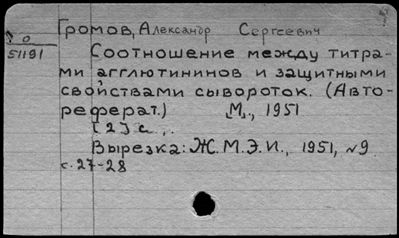 Громов, Александр Сергеевич
51191
Соотношение между титра-
ми агглютининов и защитными
свойствами сывороток. (Авто-
реферат.) М., 1951
[2] с.
Вырезка: Ж.М.Э.И., 1951, №9
с. 27-28